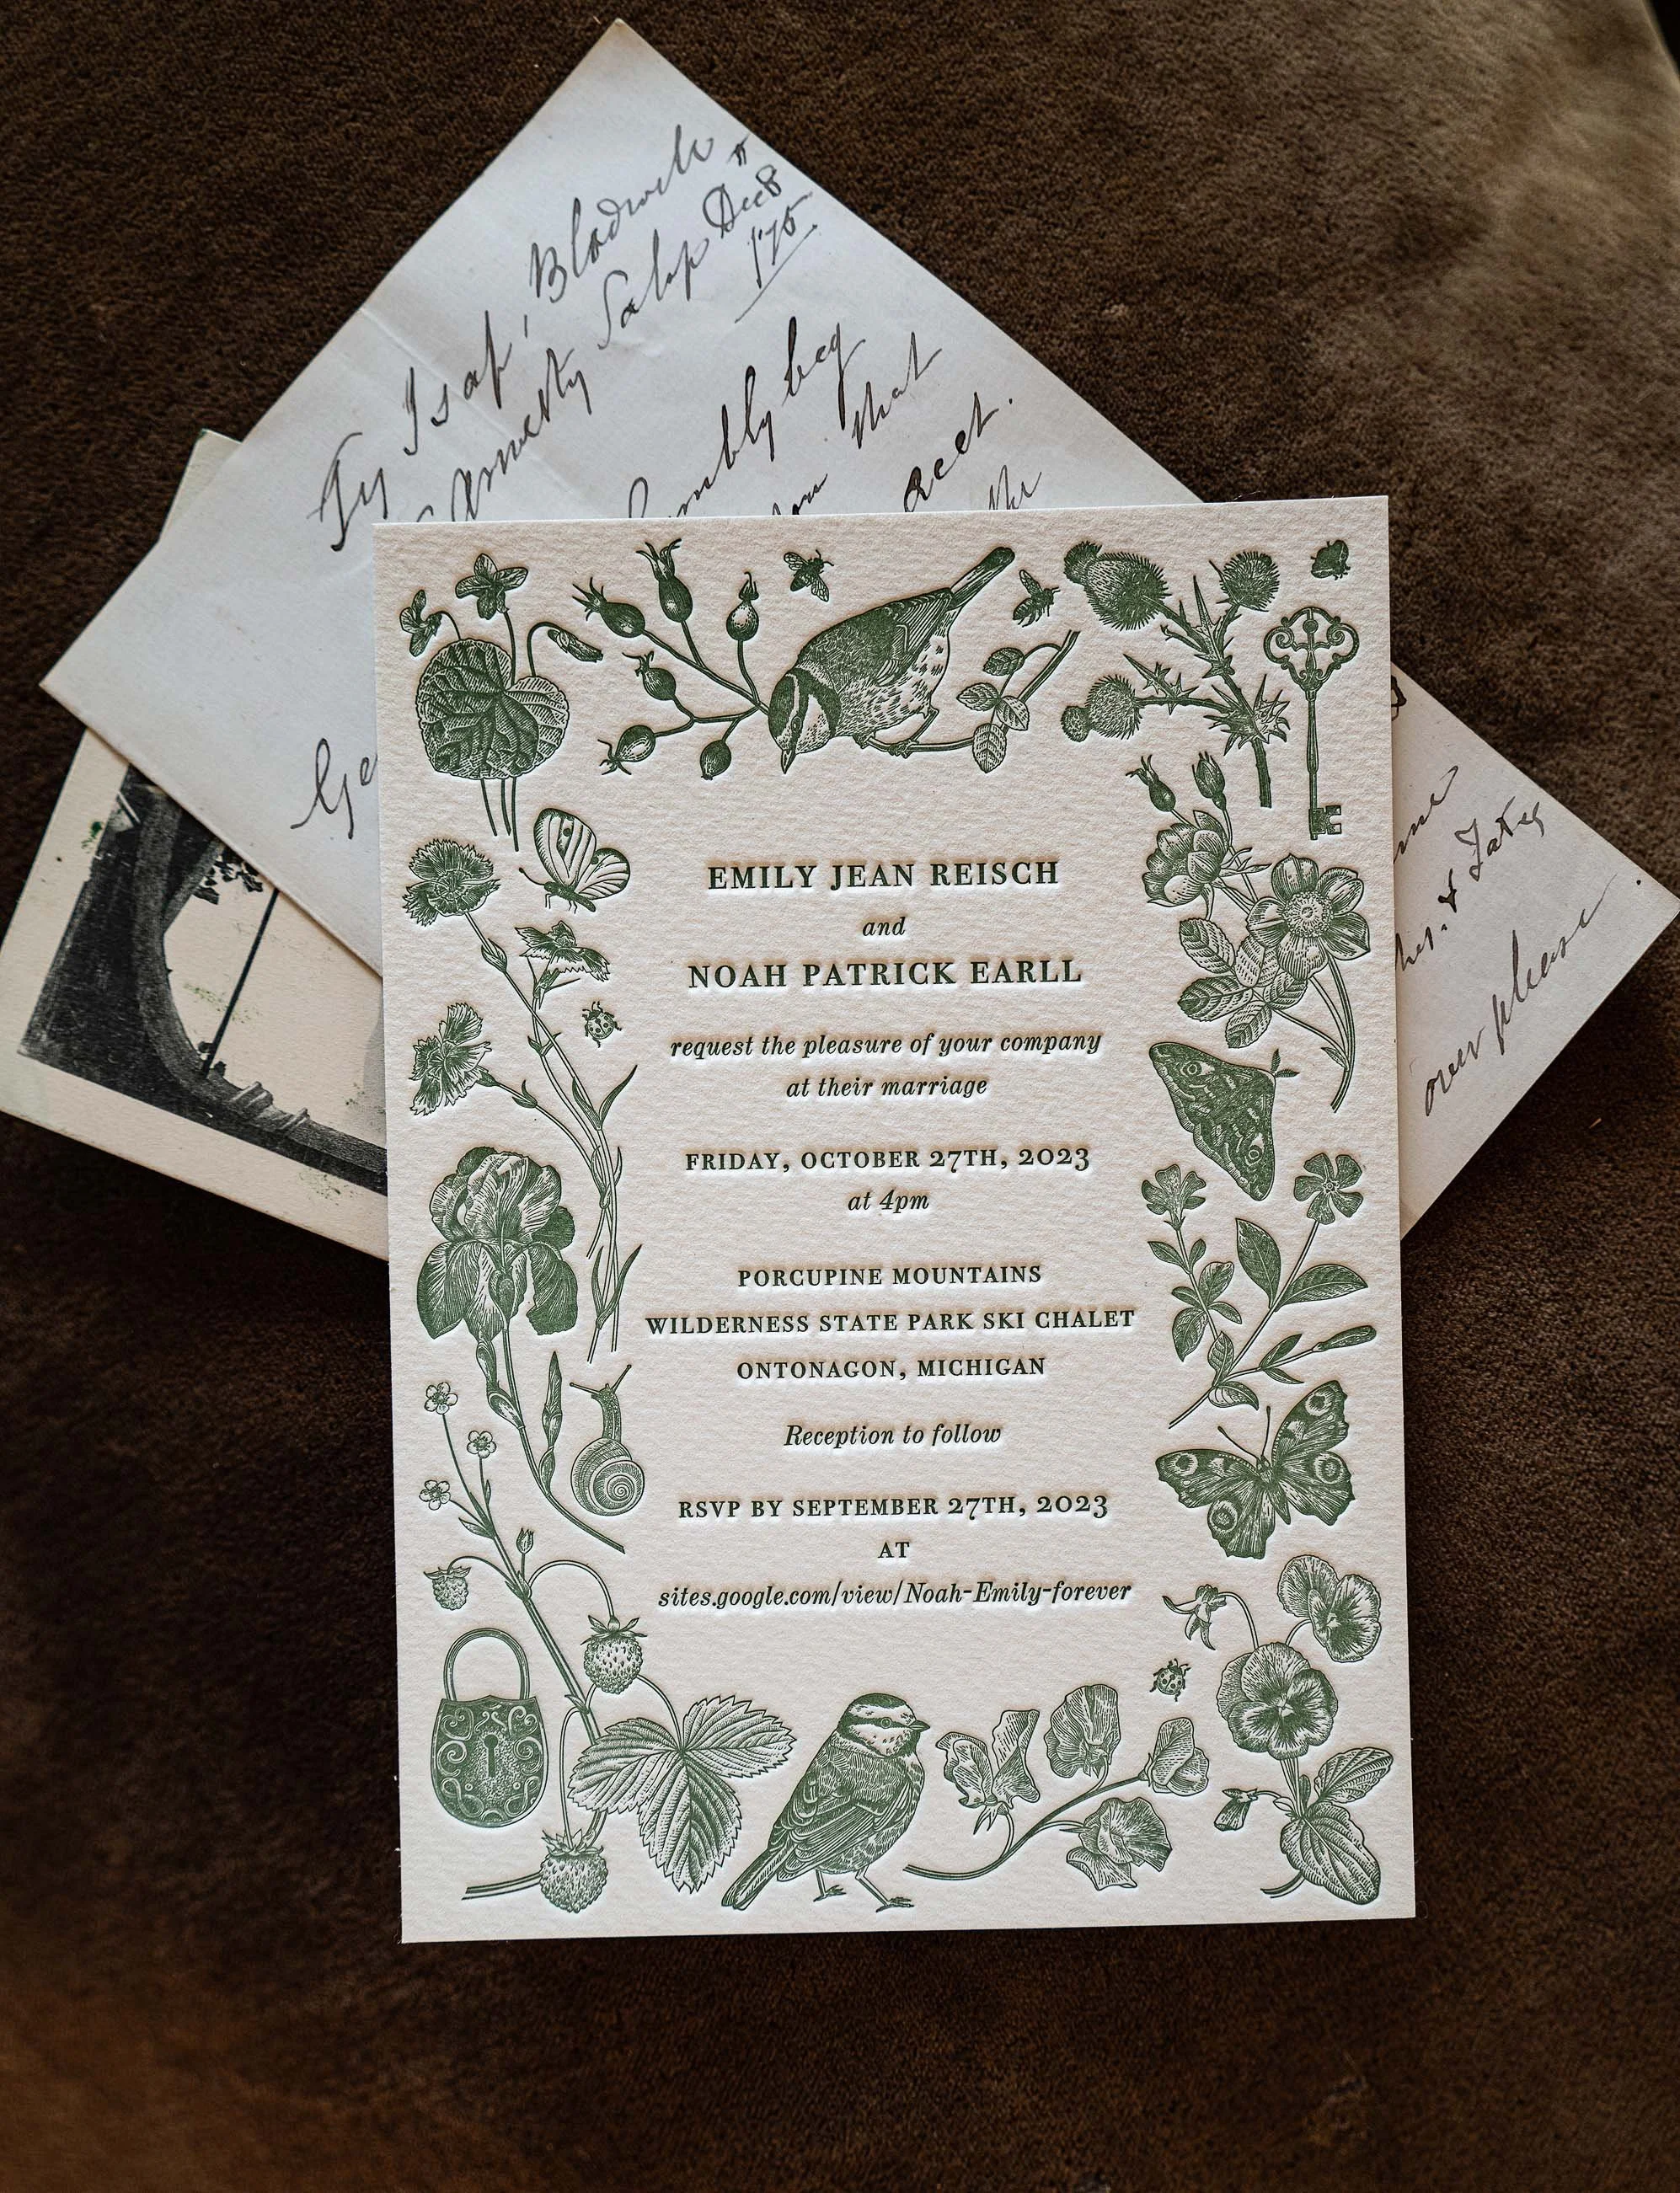 Blodwell
Decr
over please
EMILY JEAN REISCH
and
NOAH PATRICK EARLL
request the pleasure of your company
at their marriage
FRIDAY, OCTOBER 27TH, 2023
at 4pm
PORCUPINE MOUNTAINS
WILDERNESS STATE PARK SKI CHALET
ONTONAGON, MICHIGAN
Reception to follow
RSVP BY SEPTEMBER 27TH, 2023
AT
sites.google.com/view/Noah-Emily-forever